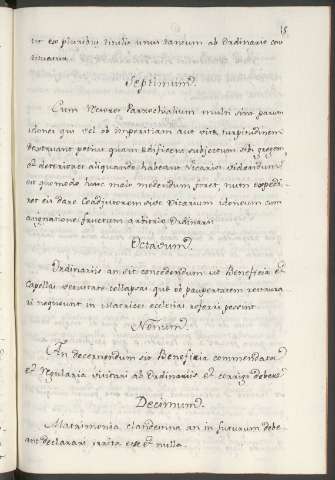 15
ut ex pluribus titulis unus tantum ab Ordinario con
stituatur.
Septimum.
Cum Rectores Parrochialium multi sint parum
idonei qui vel ob imperitiam aut vitæ turpitudinem
destruant potius quam ædificent subjectum sibi gregem,
et deteriores aliquando habeant Vicarios videndum
est quomodo huic malo medendum foret, num expedi-
ret eis dare Coadjutorem sive Vicarium idoneum cum
assignatione fructuum arbitrio Ordinarii
Octavum.
Ordinariis an sit concedendum ut Beneficia et
Capellæ vetustate collapsæ quæ ob paupertatem restaura
ri nequeunt in Matrices ecclesias referri possint
Nonum.
An decernendum sit Beneficia commendata
et regularia visitari ab Ordinariis et corrigi debere
Decimum.
Matrimonia clandestina an in futurum debe
ant declarari irrita esse et nulla.